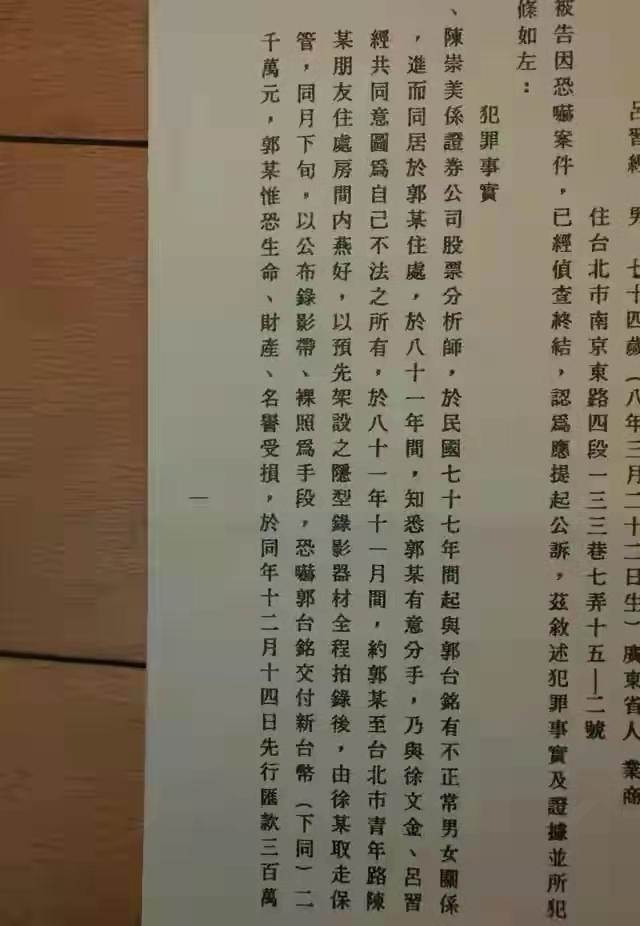 呂習經　男　七十四歲（八年三月二十二日生）廣東省人　業商
住台北市南京東路四段一三三巷七弄十五—二號
被告因恐嚇案件，已經偵查終結，認為應提起公訴，茲敘述犯罪事實及證據並所犯
條如左：
犯罪事實
、陳崇美係證券公司股票分析師，於民國七十七年間起與郭台銘有不正常男女關係
，進而同居於郭某住處，於八十一年間，知悉郭某有意分手，乃與徐文金、呂習
經共同意圖為自己不法之所有，於八十一年十一月間，約郭某至台北市青年路陳
某朋友住處房間內燕好，以預先架設之隱型錄影器材全程拍錄後，由徐某取走保
管，同月下旬，以公布錄影帶、裸照為手段，恐嚇郭台銘交付新台幣（下同）二
千萬元，郭某惟恐生命、財產、名譽受損，於同年十二月十四日先行匯款三百萬
一